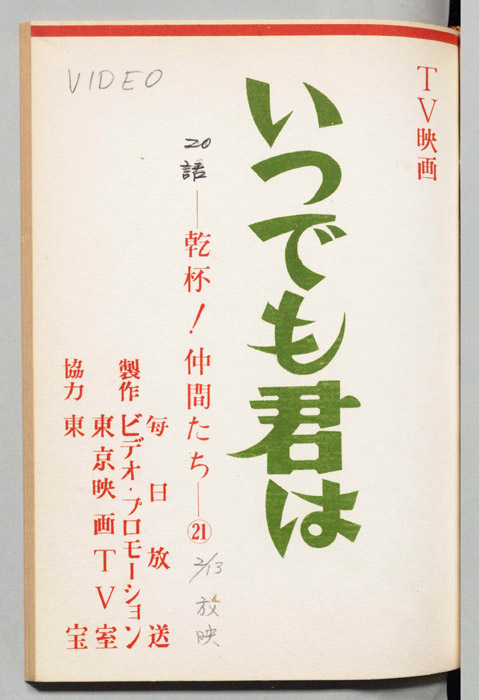 TV映画
いつでも君は
20話
―乾杯！仲間たち―㉑
2/13 放映
毎日放送
製作 ビデオ・プロモーション
東京映画TV室
協力 東宝
VIDEO